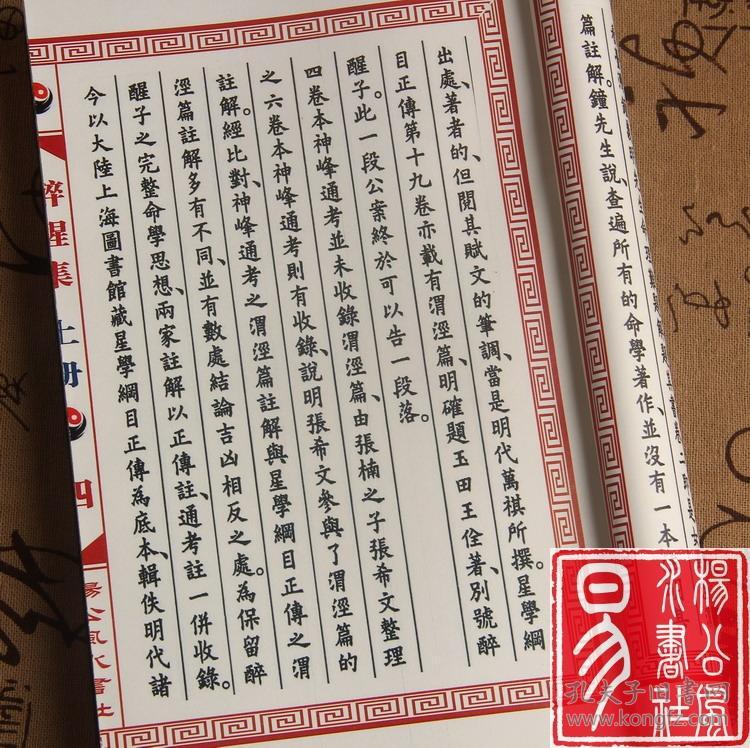 篇註解。鐘先生說、查遍所有的命學著作、並沒有一本
出處、著者的、但閱其賦文的筆調、當是明代萬祺所撰。星學綱
目正傳第十九卷亦載有渭涇篇、明確題玉田王佺著、別號醉
醒子。此一段公案終於可以告一段落。
四卷本神峰通考並未收錄渭涇篇、由張楠之子張希文整理
之六卷本神峰通考則有收錄、說明張希文參與了渭涇篇的
註解。經比對、神峰通考之渭涇篇註解與星學綱目正傳之渭
涇篇註解多有不同、並有數處結論吉凶相反之處。為保留醉
醒子之完整命學思想、兩家註解以正傳註、通考註一併收錄。
今以大陸上海圖書館藏星學綱目正傳為底本、輯佚明代諸
醉醒集 上册
四
楊公風水書社
楊公風
水書社
易
孔夫子旧書网
www.kongfz.com